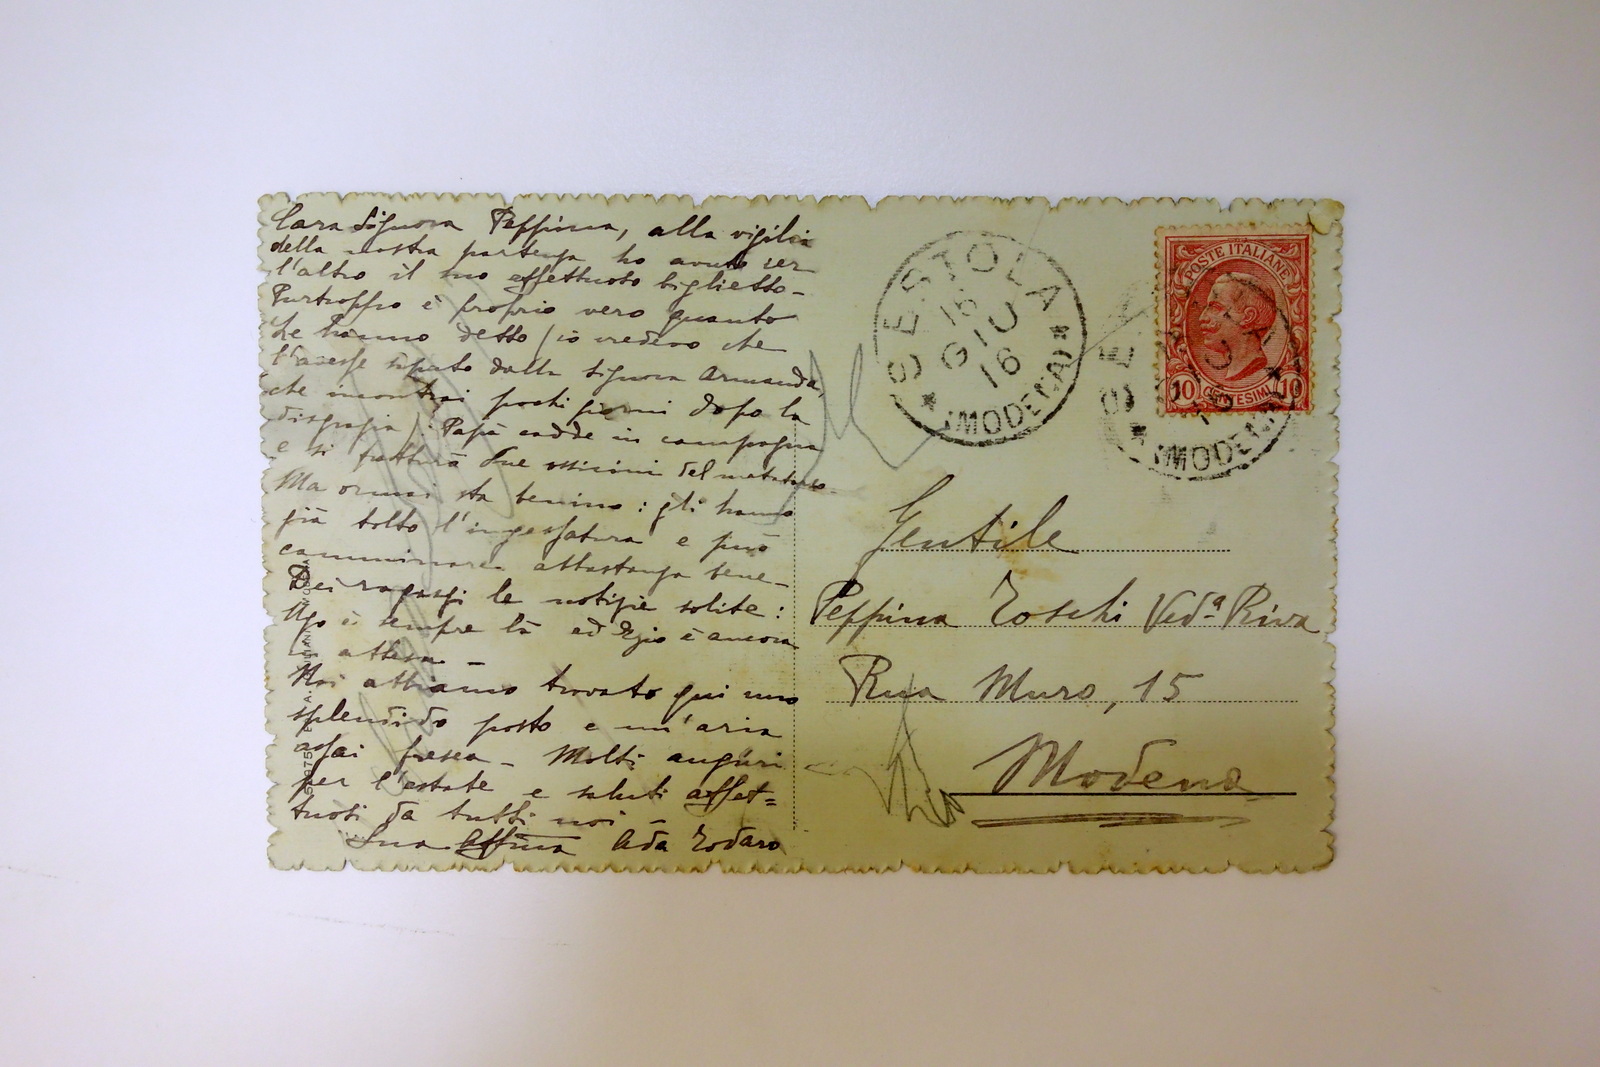 Cara Signora Peppina, alla vigilia
della nostra partenza ho avuto ier
l'altro il suo affettuoso biglietto -
Purtroppo è proprio vero quanto
Le hanno detto (io credevo che
l'avesse saputo dalla Signora Armanda,
che incontrai pochi giorni dopo la
disgrazia): Papà cadde in campagna
e si fratturò due ossicini del metatarso.
Ma ormai sta benino: gli hanno
già tolto l'ingessatura e può
camminare abbastanza bene -
Dei ragazzi le notizie solite:
Ugo è sempre là ed Ezio è ancora
in attesa -
Noi abbiamo trovato qui uno
splendido posto e un'aria
assai fresca - Molti auguri
per l'estate e saluti affet=
tuosi da tutti noi -
Sua affma Ada Todaro
SESTOLA
16
GIU
16
(MODENA)
POSTE ITALIANE
10 CENTESIMI 10
SE
(MODENA)
Gentile
Peppina Toschi Ved.ª Riva
Rua Muro, 15
Modena